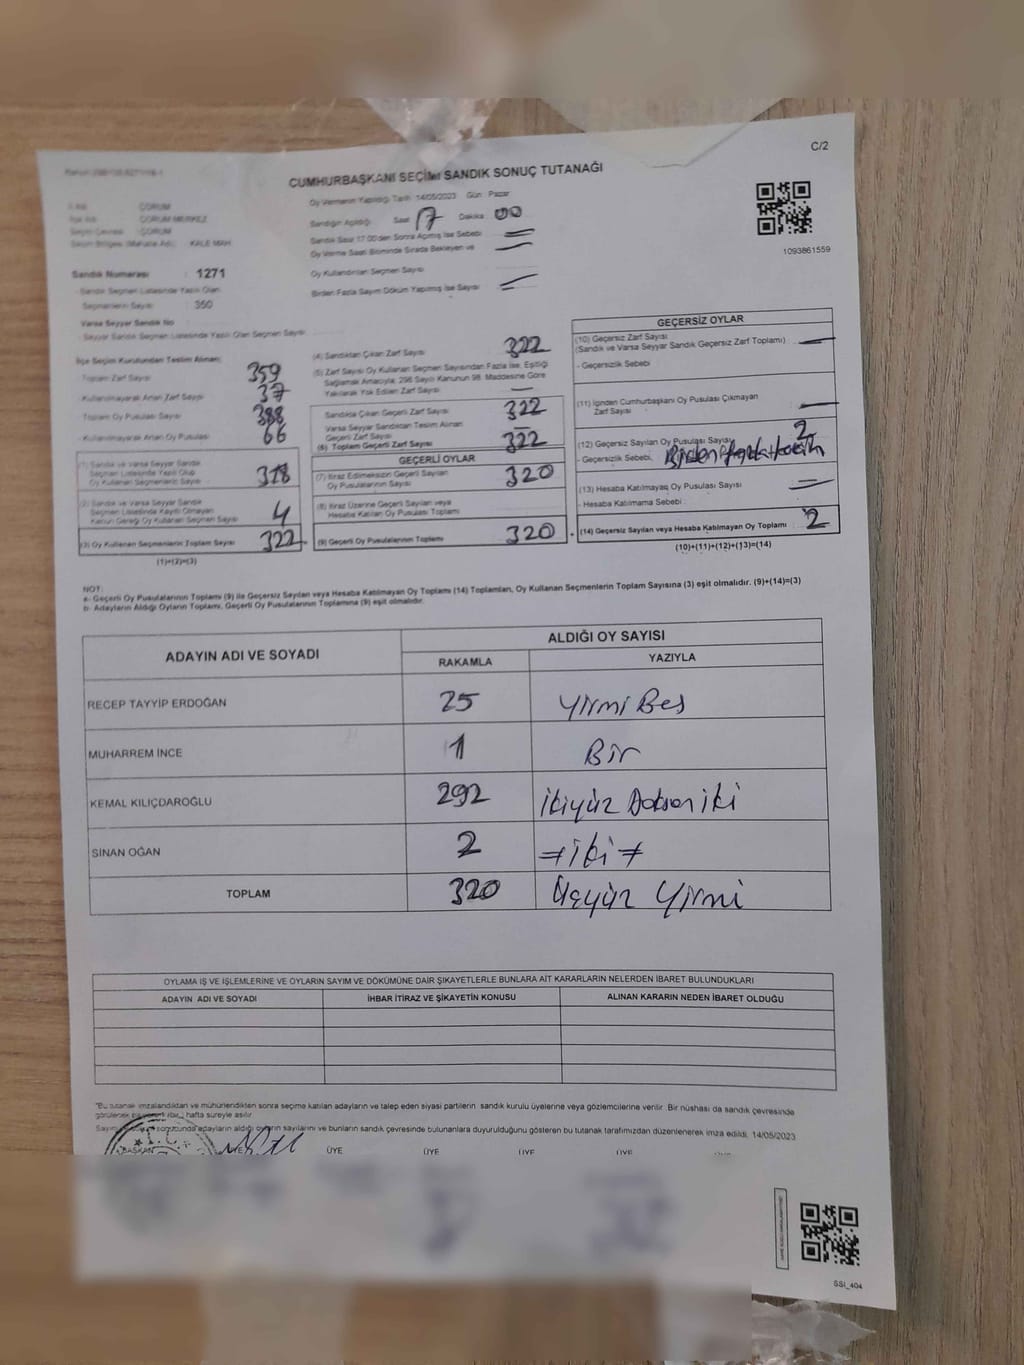 C/2
CUMHURBAŞKANI SEÇİMİ SANDIK SONUÇ TUTANAĞI
Oy Vermenin Yapıldığı Tarih 14/05/2023 Gün : Pazar
Sandığın Açıldığı Saat 17 Dakika 00
Sandık Saat 17.00'den Sonra Açılmış İse Sebebi
Oy Verme Saati Bitiminde Sırada Bekleyen ve
Oy Kullandırılan Seçmen Sayısı
Birden Fazla Sayım Döküm Yapılmış İse Sayısı
1093861559
İli Adı : ÇORUM
İlçe Adı : ÇORUM MERKEZ
Seçim Çevresi : ÇORUM
Seçim Bölgesi (Mahalle Adı) : KALE MAH.
Sandık Numarası : 1271
- Sandık Seçmen Listesinde Yazılı Olan
Seçmenlerin Sayısı : 350
Varsa Seyyar Sandık No
- Seyyar Sandık Seçmen Listesinde Yazılı Olan Seçmen Sayısı
İlçe Seçim Kurulundan Teslim Alınan:
Toplam Zarf Sayısı 359
- Kullanılmayarak Artan Zarf Sayısı 37
- Toplam Oy Pusulası Sayısı 388
- Kullanılmayarak Artan Oy Pusulası 66
(1) Sandık ve Varsa Seyyar Sandık
Seçmen Listesinde Yazılı Olup
Oy Kullanan Seçmenlerin Sayısı 318
(2) Sandık ve Varsa Seyyar Sandık
Seçmen Listesinde Kayıtlı Olmayan
Kanun Gereği Oy Kullanan Seçmen Sayısı 4
(3) Oy Kullanan Seçmenlerin Toplam Sayısı 322
(1)+(2)=(3)
(4) Sandıktan Çıkan Zarf Sayısı 322
(5) Zarf Sayısı Oy Kullanan Seçmen Sayısından Fazla İse, Eşitliği
Sağlamak Amacıyla, 298 Sayılı Kanunun 98. Maddesine Göre
Yakılarak Yok Edilen Zarf Sayısı —
Sandıkta Çıkan Geçerli Zarf Sayısı 322
Varsa Seyyar Sandıktan Teslim Alınan
Geçerli Zarf Sayısı —
(6) Toplam Geçerli Zarf Sayısı 322
GEÇERLİ OYLAR
(7) İtiraz Edilmeksizin Geçerli Sayılan
Oy Pusulalarının Sayısı 320
(8) İtiraz Üzerine Geçerli Sayılan veya
Hesaba Katılan Oy Pusulası Toplamı
(9) Geçerli Oy Pusulalarının Toplamı 320
GEÇERSİZ OYLAR
(10) Geçersiz Zarf Sayısı
(Sandık ve Varsa Seyyar Sandık Geçersiz Zarf Toplamı) —
- Geçersizlik Sebebi
(11) İçinden Cumhurbaşkanı Oy Pusulası Çıkmayan
Zarf Sayısı —
(12) Geçersiz Sayılan Oy Pusulası Sayısı 2
- Geçersizlik Sebebi Birden fazla
(13) Hesaba Katılmayan Oy Pusulası Sayısı
- Hesaba Katılmama Sebebi :
(14) Geçersiz Sayılan veya Hesaba Katılmayan Oy Toplamı 2
(10)+(11)+(12)+(13)=(14)
NOT:
a- Geçerli Oy Pusulalarının Toplamı (9) ile Geçersiz Sayılan veya Hesaba Katılmayan Oy Toplamı (14) Toplamları, Oy Kullanan Seçmenlerin Toplam Sayısına (3) eşit olmalıdır. (9)+(14)=(3)
b- Adayların Aldığı Oyların Toplamı, Geçerli Oy Pusulalarının Toplamına (9) eşit olmalıdır.
ADAYIN ADI VE SOYADI
ALDIĞI OY SAYISI
RAKAMLA YAZIYLA
RECEP TAYYİP ERDOĞAN 25 Yirmi Beş
MUHARREM İNCE 1 Bir
KEMAL KILIÇDAROĞLU 292 ikiyüz Doksan iki
SİNAN OĞAN 2 iki
TOPLAM 320 Üçyüz Yirmi
OYLAMA İŞ VE İŞLEMLERİNE VE OYLARIN SAYIM VE DÖKÜMÜNE DAİR ŞİKAYETLERLE BUNLARA AİT KARARLARIN NELERDEN İBARET BULUNDUKLARI
ADAYIN ADI VE SOYADI İHBAR İTİRAZ VE ŞİKAYETİN KONUSU ALINAN KARARIN NEDEN İBARET OLDUĞU
"Bu tutanak imzalandıktan ve mühürlendikten sonra seçime katılan adayların ve talep eden siyasi partilerin sandık kurulu üyelerine veya gözlemcilerine verilir. Bir nüshası da sandık çevresinde
görülecek bir yere 1 (bir) hafta süreyle asılır.
Sayım sonucunda adayların aldığı oyların sayılarını ve bunların sandık çevresinde bulunanlara duyurulduğunu gösteren bu tutanak tarafımızdan düzenlenerek imza edildi. 14/05/2023
BAŞKAN ÜYE ÜYE ÜYE ÜYE
SSI_404